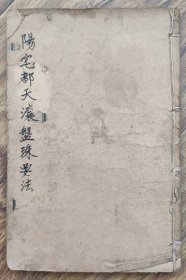 陽宅都天滚盤珠要法